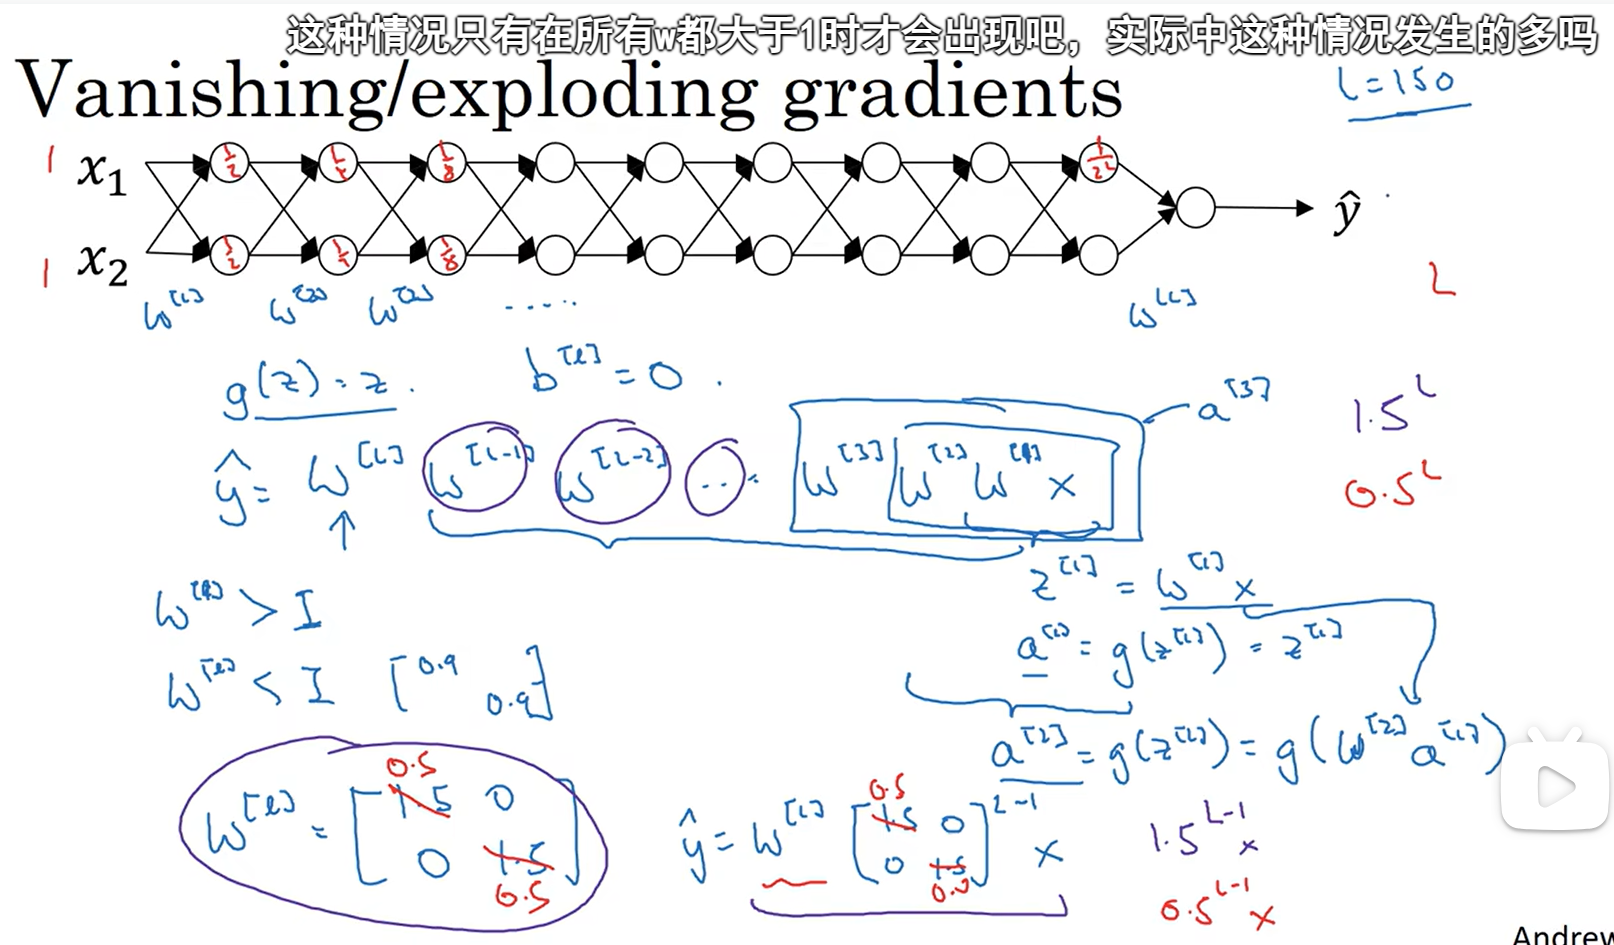 这种情况只有在所有w都大于1时才会出现吧，实际中这种情况发生的多吗
Vanishing/exploding gradients
l=150
1 x₁ 1/2 1/4 1/8 1/2^L
ŷ
1 x₂ 1/2 1/4 1/8
L
w^[1] w^[2] w^[3] ..... w^[L]
g(z)=z. b^[l]=0.
a^[3]
1.5^L
ŷ= w^[L] w^[L-1] w^[L-2] ... w^[3] w^[2] w^[1] x
0.5^L
z^[1] = w^[1] x
w^[l] > I
a^[1] = g(z^[1]) = z^[1]
w^[l] < I [0.9 0.9]
a^[2] = g(z^[2]) = g(w^[2] a^[1])
w^[l] = [1.5 0 0 1.5]
0.5
0.5
ŷ= w^[L] [1.5 0 0 1.5]^L-1 x
0.5
0.5
1.5^L-1 x
0.5^L-1 x
Andrew